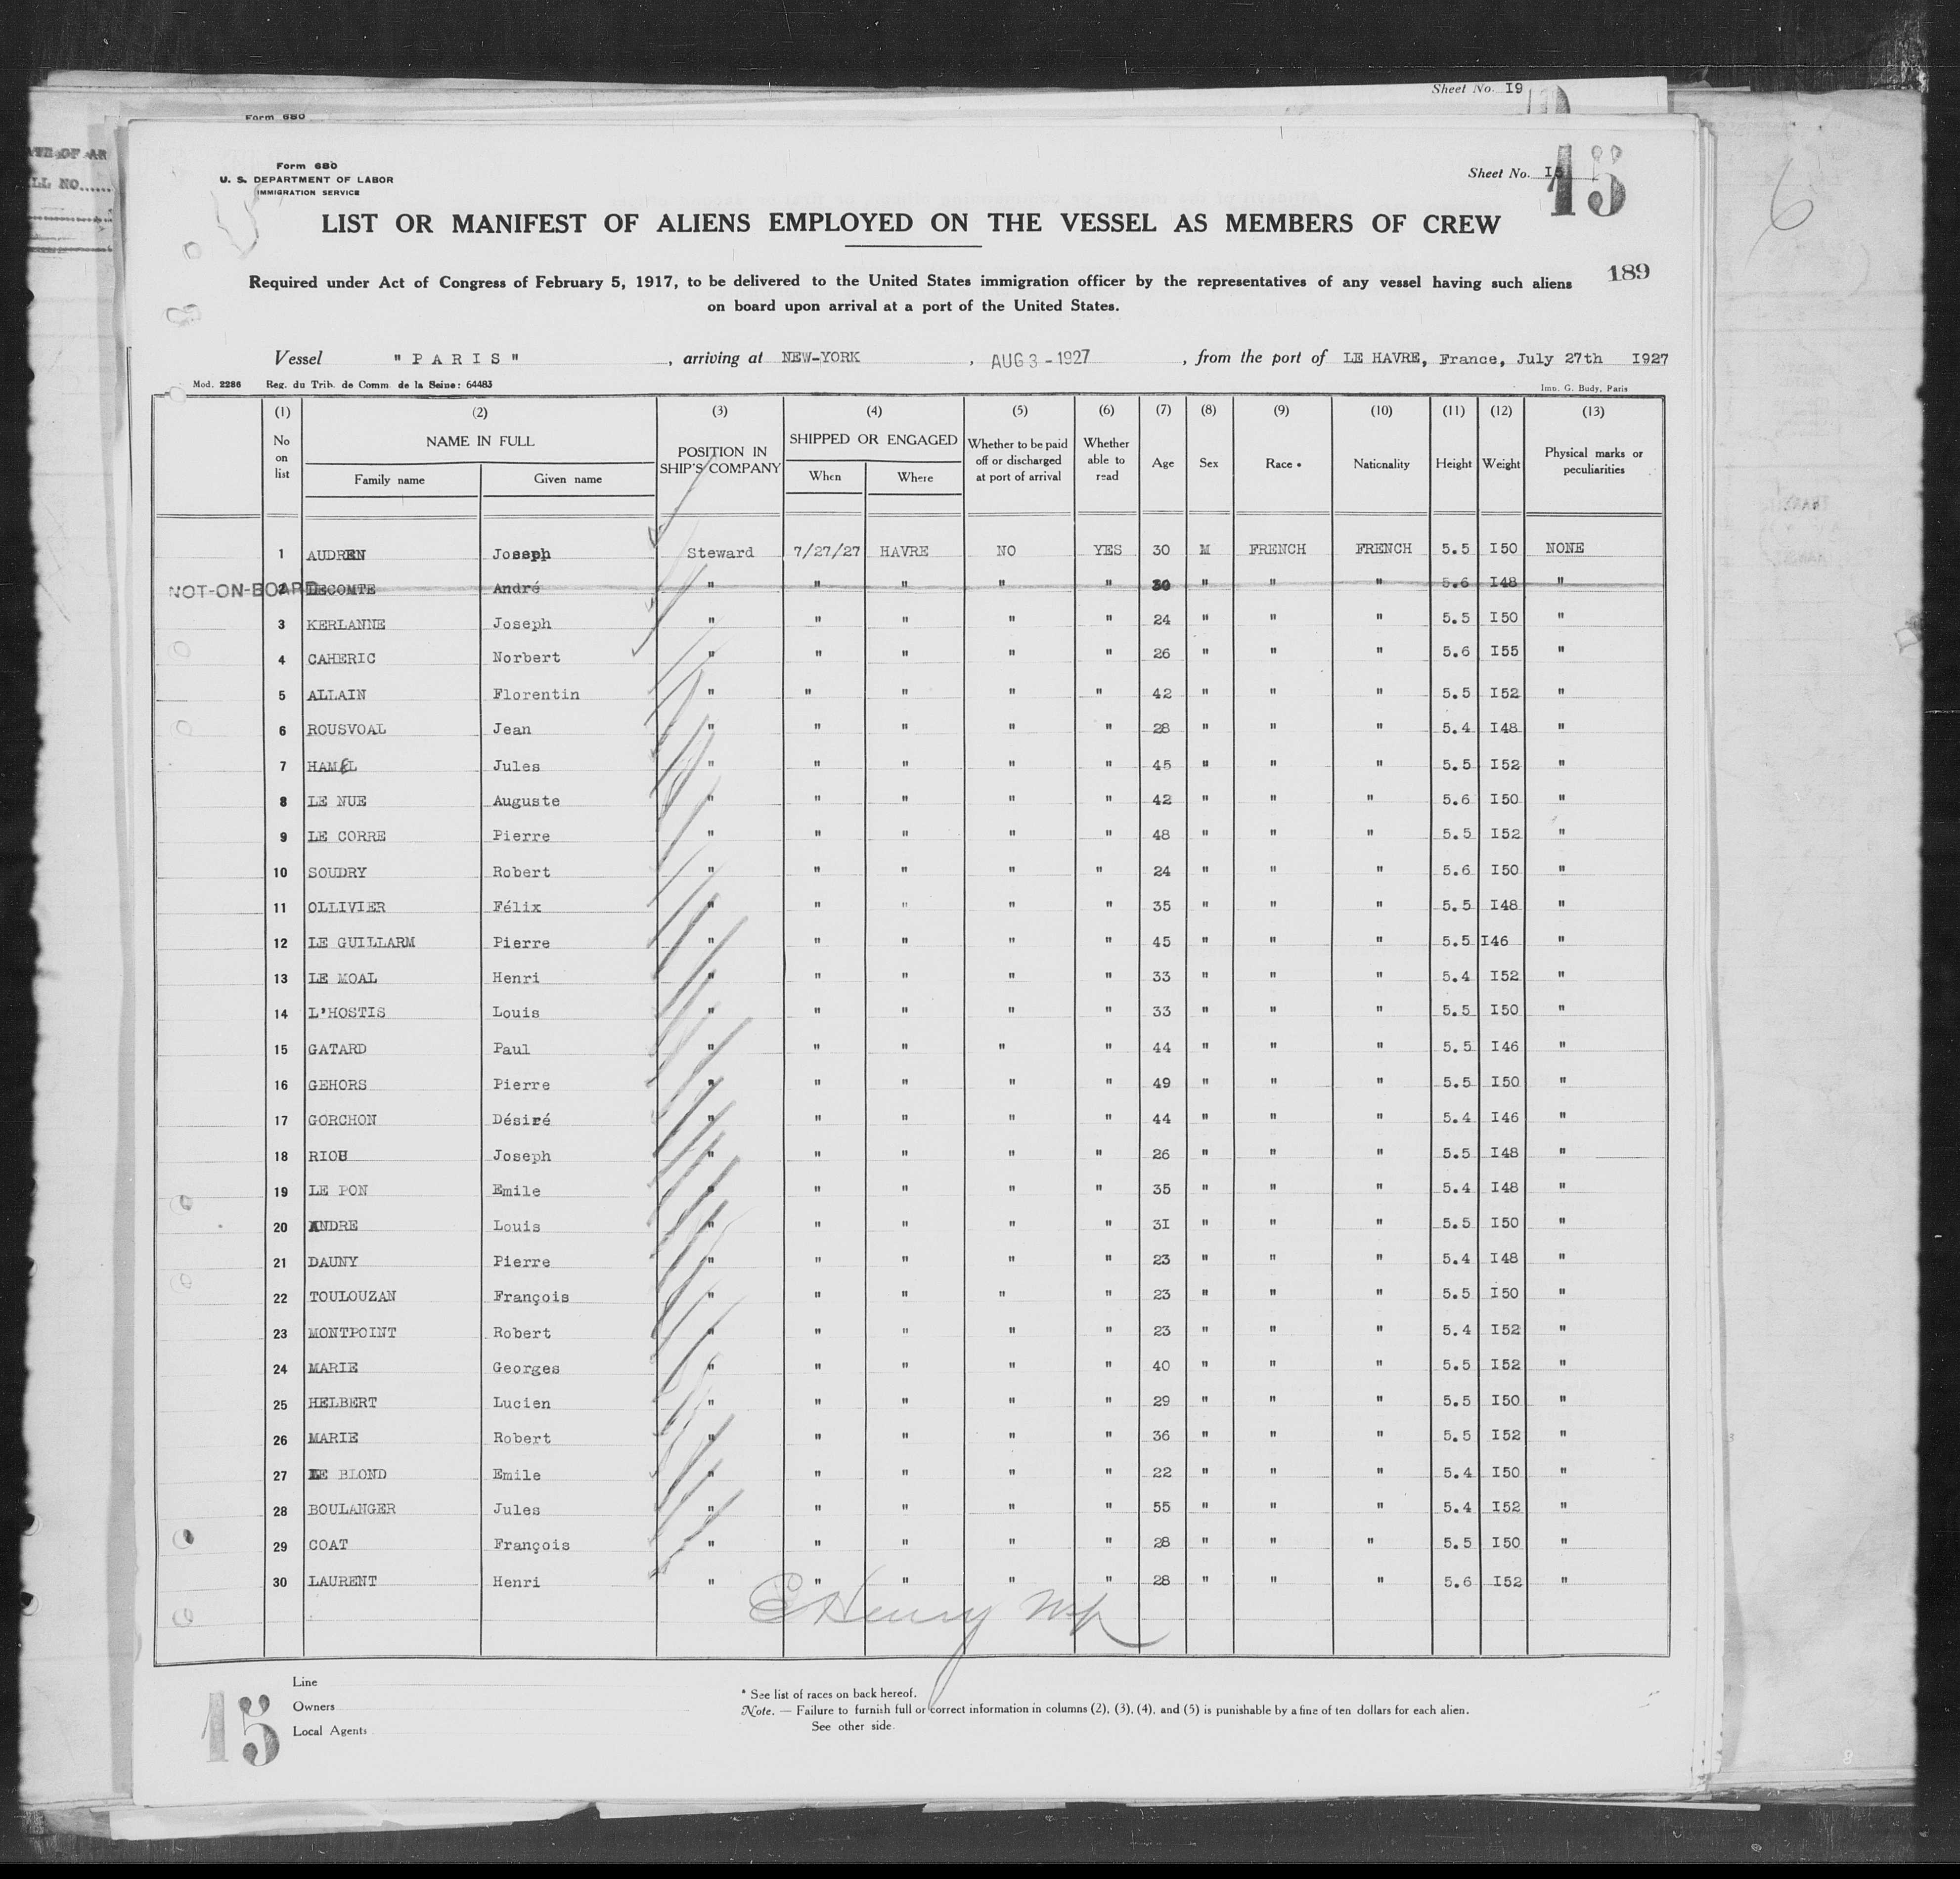 Sheet No. I9
Form 680
Form 680
U. S. DEPARTMENT OF LABOR
IMMIGRATION SERVICE
Sheet No. I5
15
6
LIST OR MANIFEST OF ALIENS EMPLOYED ON THE VESSEL AS MEMBERS OF CREW
189
Required under Act of Congress of February 5, 1917, to be delivered to the United States immigration officer by the representatives of any vessel having such aliens
on board upon arrival at a port of the United States.
Vessel "PARIS", arriving at NEW-YORK, AUG 3 - 1927, from the port of LE HAVRE, France, July 27th I927
Mod. 2286 Reg. du Trib. de Comm. de la Seine: 64483 Imp. G. Budy, Paris
(1) (2) (3) (4) (5) (6) (7) (8) (9) (10) (11) (12) (13)
No on list NAME IN FULL Family name Given name POSITION IN SHIP'S COMPANY SHIPPED OR ENGAGED When Where Whether to be paid off or discharged at port of arrival Whether able to read Age Sex Race * Nationality Height Weight Physical marks or peculiarities
1 AUDREN Joseph Steward 7/27/27 HAVRE NO YES 30 M FRENCH FRENCH 5.5 I50 NONE
NOT-ON-BOARD 2 LECOMTE André " " " " " 30 " " " 5.6 I48 "
3 KERLANNE Joseph " " " " " 24 " " " 5.5 I50 "
4 CAHERIC Norbert " " " " " 26 " " " 5.6 I55 "
5 ALLAIN Florentin " " " " " 42 " " " 5.5 I52 "
6 ROUSVOAL Jean " " " " " 28 " " " 5.4 I48 "
7 HAMEL Jules " " " " " 45 " " " 5.5 I52 "
8 LE NUE Auguste " " " " " 42 " " " 5.6 I50 "
9 LE CORRE Pierre " " " " " 48 " " " 5.5 I52 "
10 SOUDRY Robert " " " " " 24 " " " 5.6 I50 "
11 OLLIVIER Félix " " " " " 35 " " " 5.5 I48 "
12 LE GUILLARM Pierre " " " " " 45 " " " 5.5 I46 "
13 LE MOAL Henri " " " " " 33 " " " 5.4 I52 "
14 L'HOSTIS Louis " " " " " 33 " " " 5.5 I50 "
15 GATARD Paul " " " " " 44 " " " 5.5 I46 "
16 GEHORS Pierre " " " " " 49 " " " 5.5 I50 "
17 GORCHON Désiré " " " " " 44 " " " 5.4 I46 "
18 RIOU Joseph " " " " " 26 " " " 5.5 I48 "
19 LE PON Emile " " " " " 35 " " " 5.4 I48 "
20 ANDRE Louis " " " " " 3I " " " 5.5 I50 "
21 DAUNY Pierre " " " " " 23 " " " 5.4 I48 "
22 TOULOUZAN François " " " " " 23 " " " 5.5 I50 "
23 MONTPOINT Robert " " " " " 23 " " " 5.4 I52 "
24 MARIE Georges " " " " " 40 " " " 5.5 I52 "
25 HELBERT Lucien " " " " " 29 " " " 5.5 I50 "
26 MARIE Robert " " " " " 36 " " " 5.5 I52 "
27 LE BLOND Emile " " " " " 22 " " " 5.4 I50 "
28 BOULANGER Jules " " " " " 55 " " " 5.4 I52 "
29 COAT François " " " " " 28 " " " 5.5 I50 "
30 LAURENT Henri " " " " " 28 " " " 5.6 I52 "
E Henry
Line
Owners
Local Agents
15
* See list of races on back hereof.
Note. — Failure to furnish full or correct information in columns (2), (3), (4), and (5) is punishable by a fine of ten dollars for each alien.
See other side.